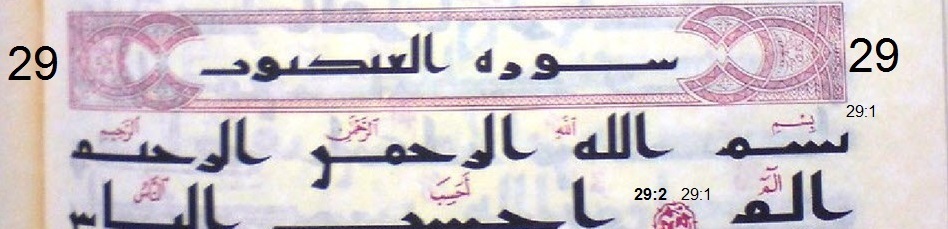 29 سوره العنكبوت 29
29:1
بِسْمِ اللَّهِ الرَّحْمَٰنِ الرَّحِيمِ
بسم الله الرحمن الرحيم
الٓمٓ 29:1 29:2 أَحَسِبَ النَّاسُ
الم احسب الناس